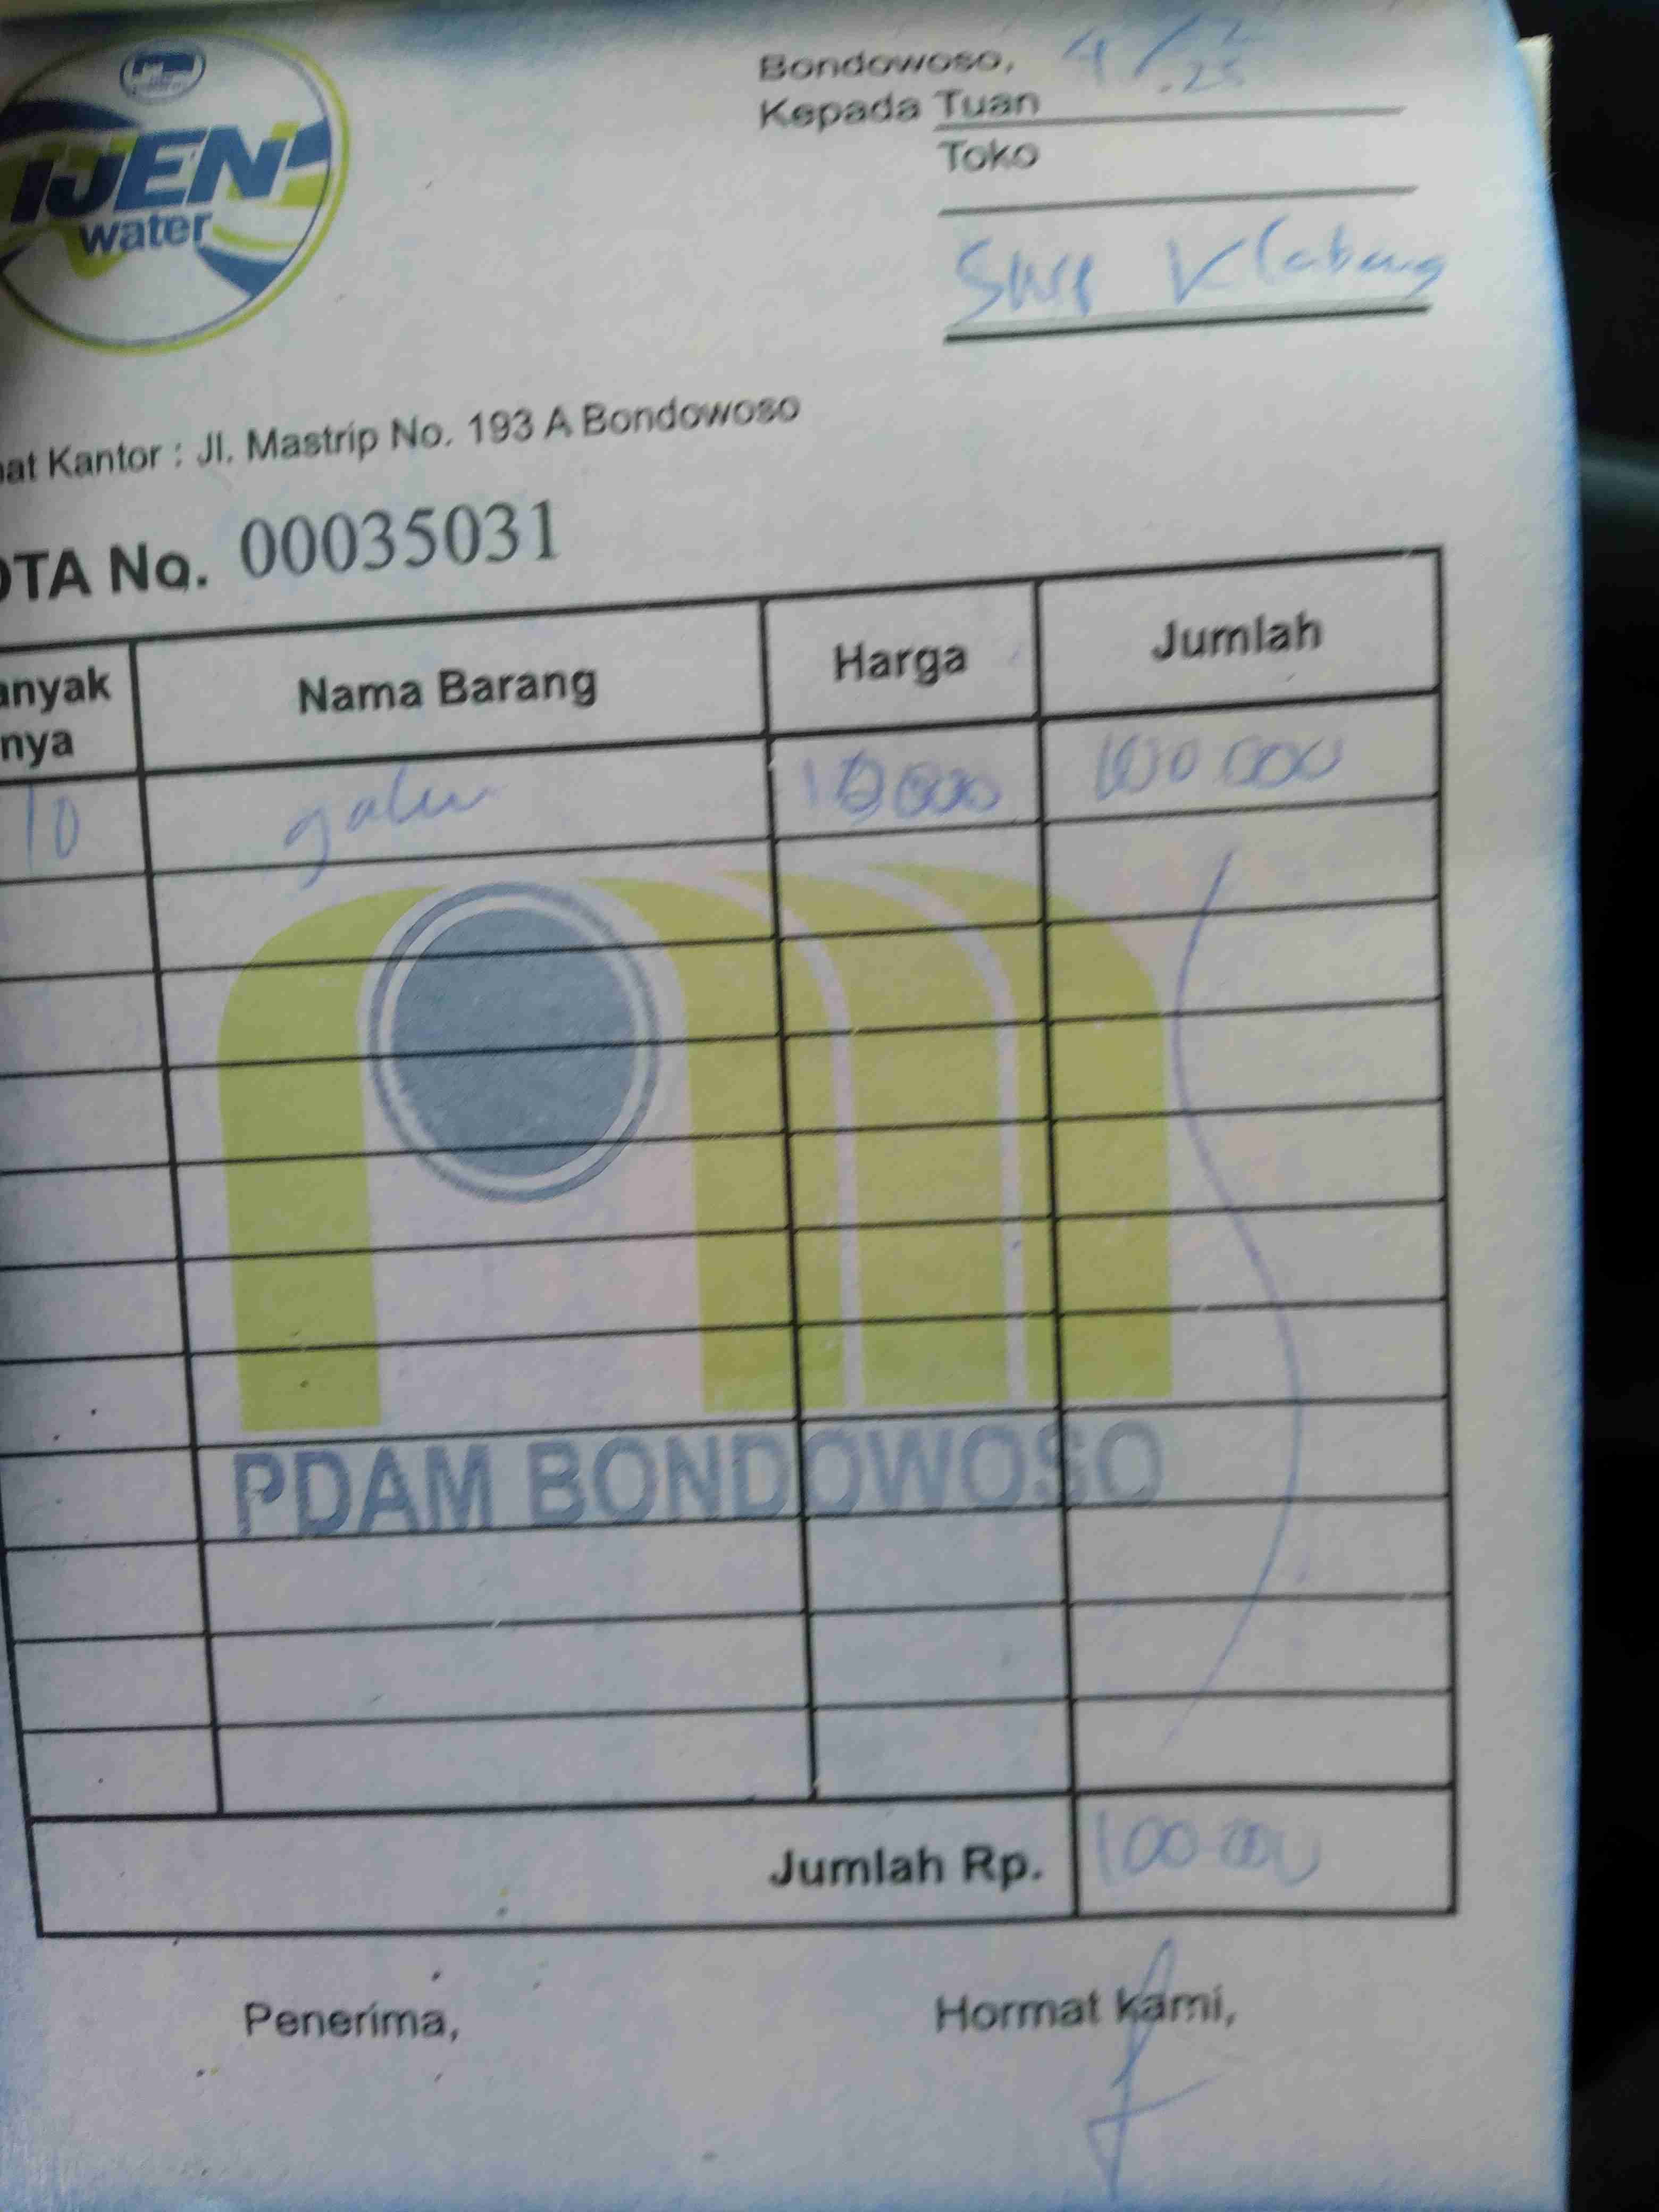 IJEN
water
Bondowoso, 4/2.25
Kepada Tuan
Toko
Klabang
at Kantor : Jl. Mastrip No. 193 A Bondowoso
OTA No. 00035031
anyak
nya
Nama Barang
Harga
Jumlah
10
galon
10000
100.000
PDAM BONDOWOSO
Jumlah Rp.
100.000
Penerima,
Hormat kami,